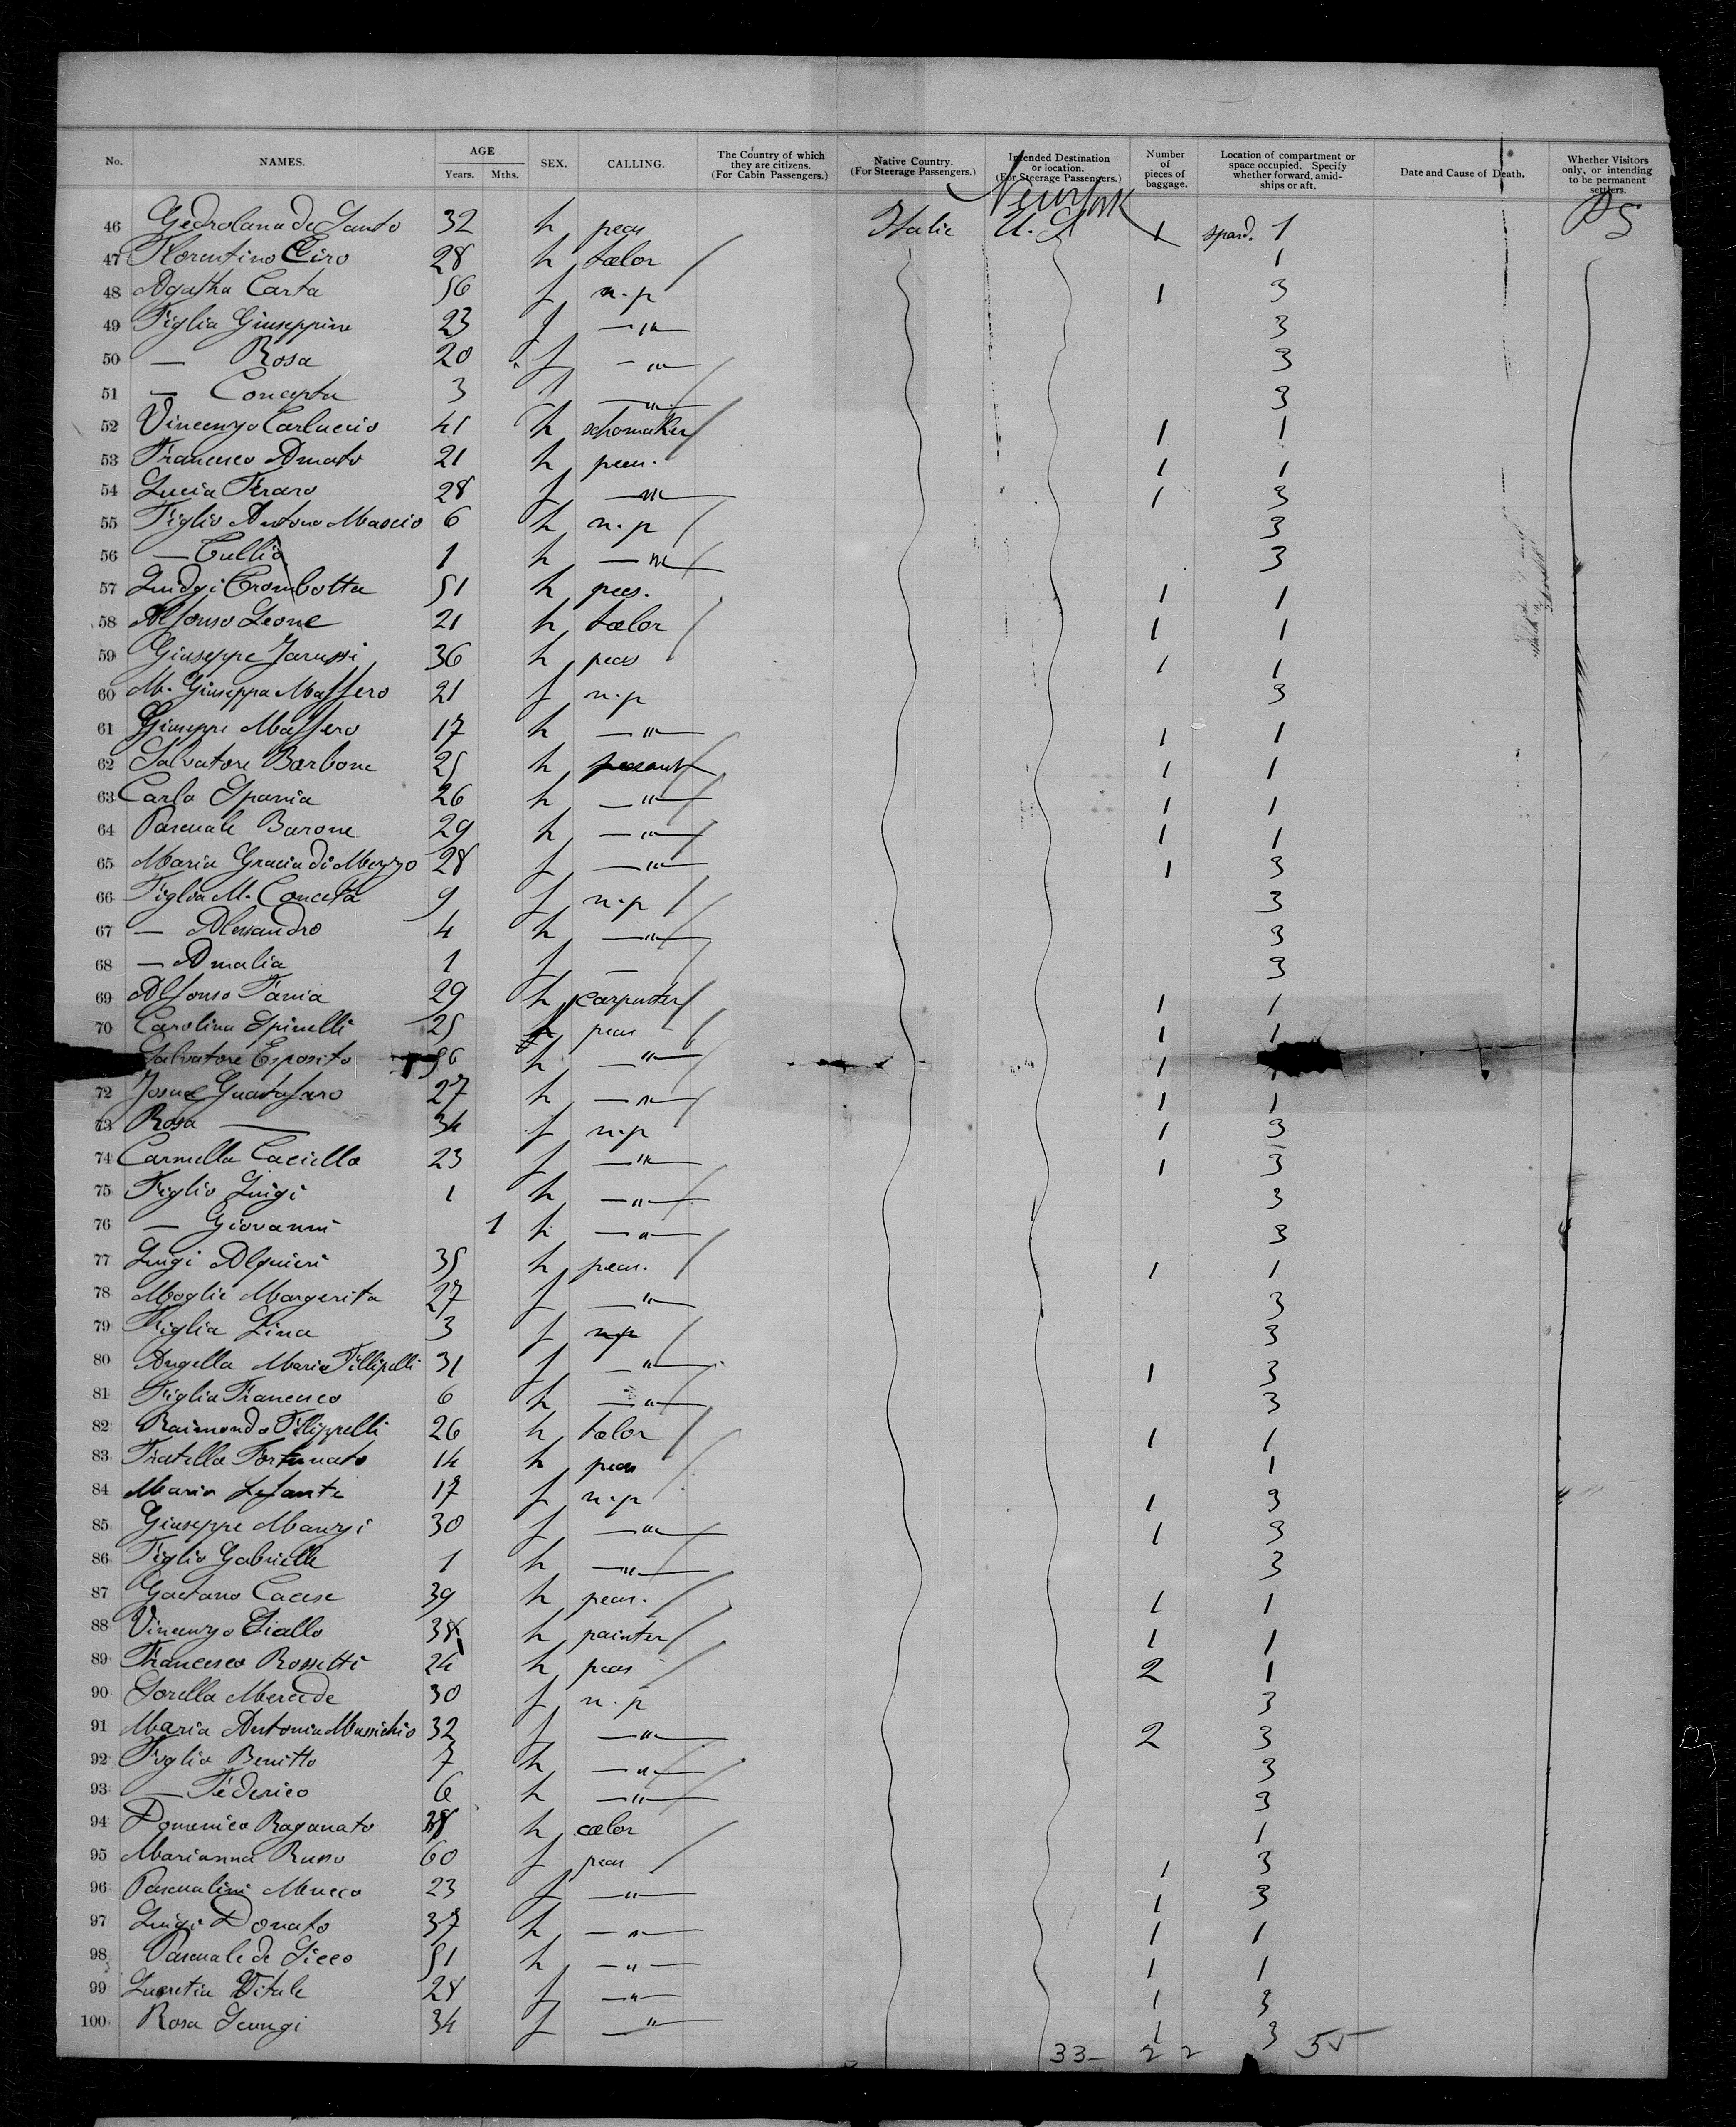 No. NAMES. AGE Years. Mths. SEX. CALLING. The Country of which they are citizens. (For Cabin Passengers.) Native Country. (For Steerage Passengers.) Intended Destination or location. (For Steerage Passengers.) Number of pieces of baggage. Location of compartment or space occupied. Specify whether forward, amidships or aft. Date and Cause of Death. Whether Visitors only, or intending to be permanent settlers.
New York
46 32 h peas Italie U.S. 1 1 PS
47 Florentino Ciro 28 h tælor 1
48 Agatha Carta 56 f n.p 1 3
49 Figlia Giuseppine 23 f — " — 3
50 — Rosa 20 f — " — 3
51 — Concepta 3 f — " — 3
52 Vincenzo Carluccio 41 h schomaker 1 1
53 Francesco Amato 21 h peas. 1 1
54 Lucia Feraro 28 f — " — 1 3
55 Figlio Antono Mascio 6 h n.p 3
56 — Tullio 1 h — " — 3
57 Luidgi Trombotta 51 h peas. 1 1
58 Alfonso Leone 21 h tælor 1 1
59 Giuseppe Jarussi 36 h peas 1 1
60 M. Giuseppa Maffero 21 f n.p 3
61 Giuseppe Maffero 17 h — " — 1 1
62 Salvatore Barbone 25 h peasant 1 1
63 Carlo Spania 26 h — " — 1 1
64 Pascuale Barone 29 h — " — 1 1
65 Maria Gracia di Mezzo 28 f — " — 1 3
66 Figlia M. Conceta 9 f n.p 3
67 — Alessandro 4 h — " — 3
68 — Amalia 1 f — 3
69 Alfonso Fania 29 h carpenter 1 1
70 Carolina Spinelli 25 f peas 1 1
Salvatore Esposito 56 h — " — 1 1
72 Josue Guatafaro 27 h — " — 1 1
73 Rosa — 34 f n.p 1 3
74 Carmella Caciello 23 f — " — 1 3
75 Figlio Luigi 1 h — " — 3
76 — Giovanni 1 h — " — 3
77 Luigi Alquieri 35 h peas. 1 1
78 Moglie Margerita 27 f — " — 3
79 Figlia Lina 3 f n.p 3
80 Angella Maria Fillipelli 31 f — " — 1 3
81 Figlia Francesco 6 h — " — 3
82 Raimondo Filippelli 26 h tælor 1 1
83 Fratello Fortunato 14 h peas 1
84 Maria Lefante 17 f n.p 1 3
85 Giuseppe Manzi 30 f — " — 1 3
86 Figlio Gabrielle 1 h — " — 3
87 Gaetano Cacese 39 h peas. 1 1
88 Vincenzo Siallo 38 h painter 1 1
89 Francesco Rossetti 24 h peas 2 1
90 Sorella Mercede 30 f n.p 3
91 Maria Antonia Massichio 32 f — " — 2 3
92 Figlio Benitto 7 h — " — 3
93 — Federico 6 h — " — 3
94 Domenico Raganato 38 h cælor 1
95 Marianna Russo 60 f peas 1 3
96 Pascualini Mucco 23 f — " — 1 3
97 Luigi Donato 37 h — " — 1 1
98 Pascuale de Sicco 51 h — " — 1 1
99 Lucretia Vitale 28 f — " — 1 3
100 Rosa 34 f — " — 1 3
33 — 22 55